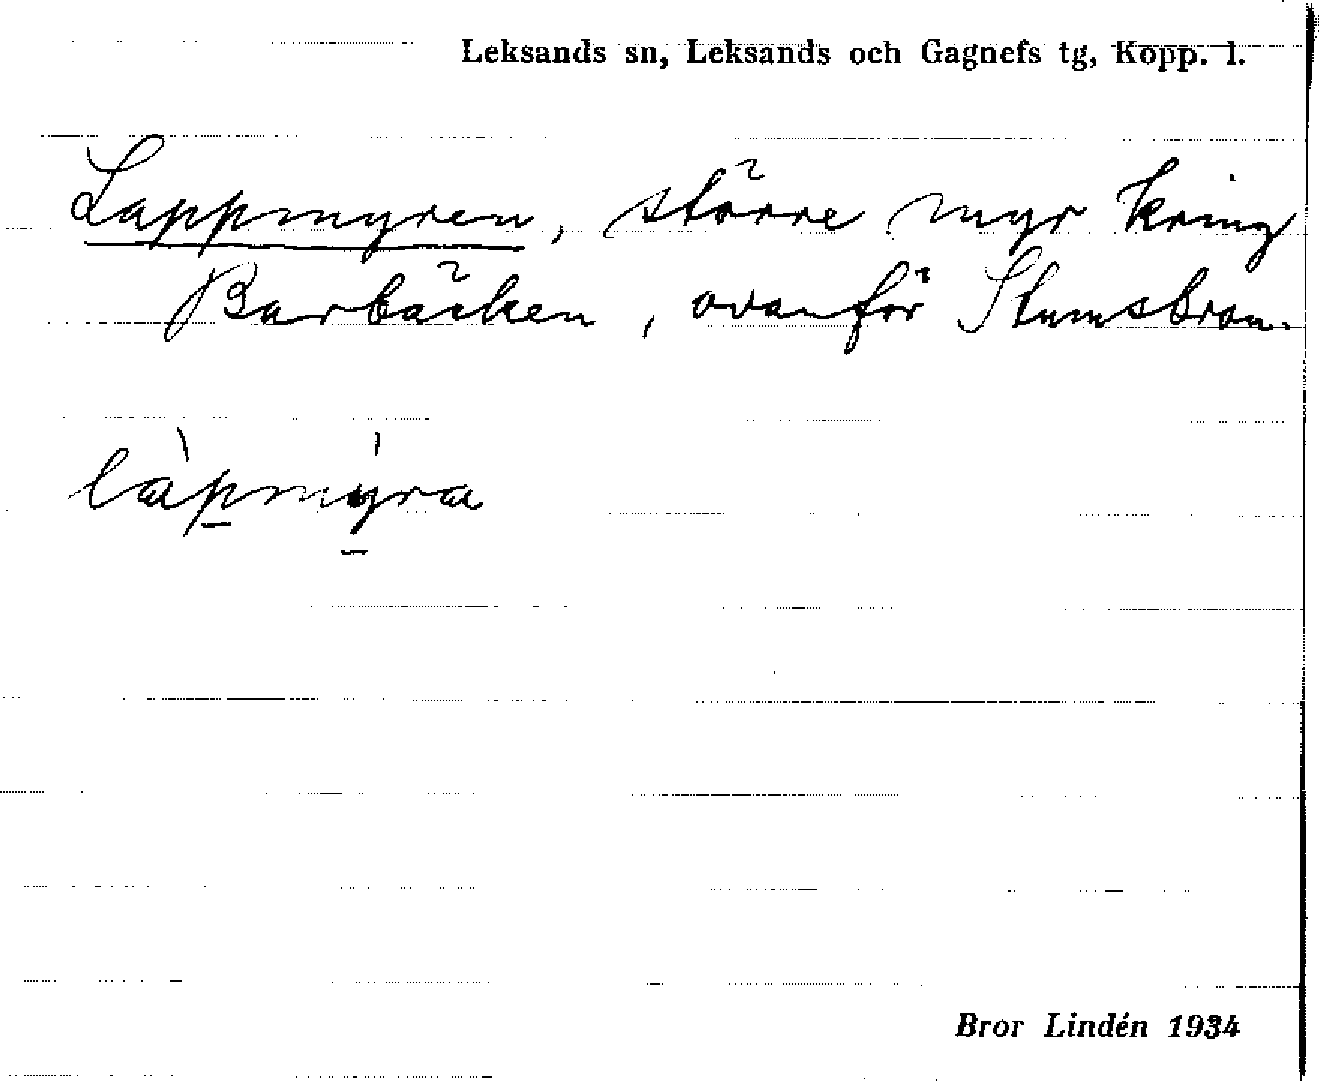 Leksands sn, Leksands och Gagnefs tg, Kopp. l.
Lappmyren, större myr kring
Barbäcken, ovanför Stumsbron.
làpmýra
Bror Lindén 1934